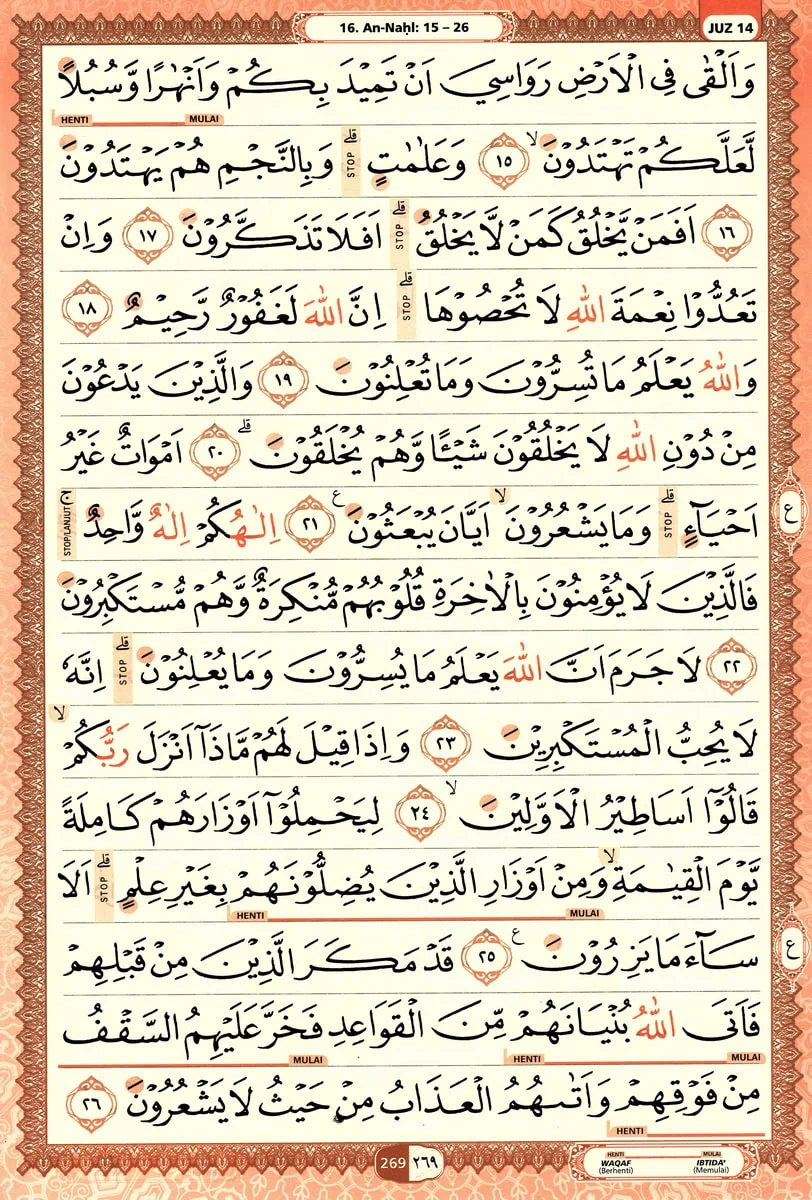 16. An-Naḥl: 15 – 26
JUZ 14
وَاَلْقٰى فِى الْاَرْضِ رَوَاسِيَ اَنْ تَمِيْدَ بِكُمْ وَاَنْهٰرًا وَّسُبُلًا
HENTI MULAI
لَّعَلَّكُمْ تَهْتَدُوْنَۙ ١٥ وَعَلٰمٰتٍۗ STOP وَبِالنَّجْمِ هُمْ يَهْتَدُوْنَ
١٦ اَفَمَنْ يَّخْلُقُ كَمَنْ لَّا يَخْلُقُۗ STOP اَفَلَا تَذَكَّرُوْنَ ١٧ وَاِنْ
تَعُدُّوْا نِعْمَةَ اللّٰهِ لَا تُحْصُوْهَاۗ STOP اِنَّ اللّٰهَ لَغَفُوْرٌ رَّحِيْمٌ ١٨
وَاللّٰهُ يَعْلَمُ مَا تُسِرُّوْنَ وَمَا تُعْلِنُوْنَ ١٩ وَالَّذِيْنَ يَدْعُوْنَ
مِنْ دُوْنِ اللّٰهِ لَا يَخْلُقُوْنَ شَيْـًٔا وَّهُمْ يُخْلَقُوْنَۗ ٢٠ اَمْوَاتٌ غَيْرُ
اَحْيَاۤءٍۗ STOP وَمَا يَشْعُرُوْنَۙ اَيَّانَ يُبْعَثُوْنَ ع ٢١ اِلٰهُكُمْ اِلٰهٌ وَّاحِدٌۚ STOP/LANJUT
ع
فَالَّذِيْنَ لَا يُؤْمِنُوْنَ بِالْاٰخِرَةِ قُلُوْبُهُمْ مُّنْكِرَةٌ وَّهُمْ مُّسْتَكْبِرُوْنَ
٢٢ لَا جَرَمَ اَنَّ اللّٰهَ يَعْلَمُ مَا يُسِرُّوْنَ وَمَا يُعْلِنُوْنَۗ STOP اِنَّهٗ
لَا يُحِبُّ الْمُسْتَكْبِرِيْنَ ٢٣ وَاِذَا قِيْلَ لَهُمْ مَّاذَآ اَنْزَلَ رَبُّكُمْۙ
قَالُوْٓا اَسَاطِيْرُ الْاَوَّلِيْنَۙ ٢٤ لِيَحْمِلُوْٓا اَوْزَارَهُمْ كَامِلَةً
يَّوْمَ الْقِيٰمَةِۙ وَمِنْ اَوْزَارِ الَّذِيْنَ يُضِلُّوْنَهُمْ بِغَيْرِ عِلْمٍۗ STOP اَلَا
HENTI MULAI
سَاۤءَ مَا يَزِرُوْنَ ع ٢٥ قَدْ مَكَرَ الَّذِيْنَ مِنْ قَبْلِهِمْ
ع
فَاَتَى اللّٰهُ بُنْيَانَهُمْ مِّنَ الْقَوَاعِدِ فَخَرَّ عَلَيْهِمُ السَّقْفُ
MULAI HENTI MULAI
مِنْ فَوْقِهِمْ وَاَتٰىهُمُ الْعَذَابُ مِنْ حَيْثُ لَا يَشْعُرُوْنَ ٢٦
HENTI
269 ٢٦٩
HENTI MULAI
WAQAF IBTIDA'
(Berhenti) (Memulai)